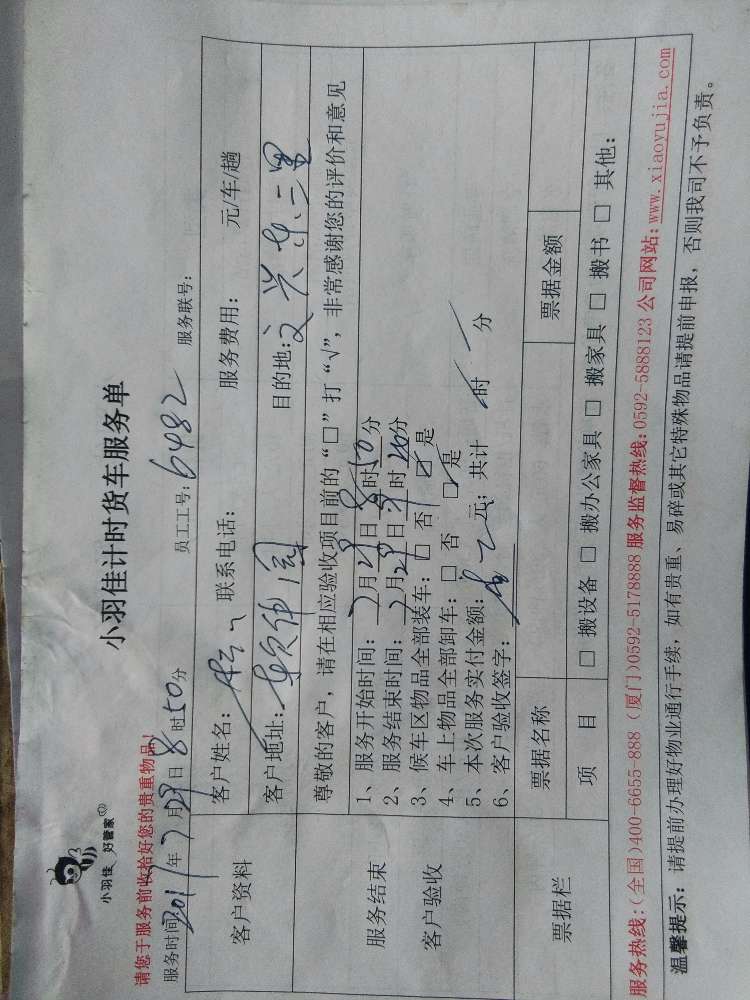 小羽佳 好管家
小羽佳计时货车服务单
请您于服务前收拾好您的贵重物品！
服务时间 2011年7月29日8时50分 员工工号：6482 服务联号：
客户资料
客户姓名： 联系电话： 服务费用： 元/车/趟
客户地址： 目的地：文兴东二里
尊敬的客户，请在相应验收项目前的“□”打“√”，非常感谢您的评价和意见
服务结束
客户验收
1、服务开始时间：7月29日8时50分
2、服务结束时间：7月29日9时20分
3、候车区物品全部装车：□ 否 ☑ 是
4、车上物品全部卸车：□ 否 ☑ 是
5、本次服务实付金额： 元；共计 时 分
6、客户验收签字：
票据栏
票据名称 票据金额
项 目 □ 搬设备 □ 搬办公家具 □ 搬家具 □ 搬书 □ 其他：
服务热线：（全国）400-6655-888（厦门）0592-5178888 服务监督热线：0592-5888123 公司网站：www.xiaoyujia.com
温馨提示：请提前办理好物业通行手续，如有贵重、易碎或其它特殊物品请提前申报，否则我司不予负责。